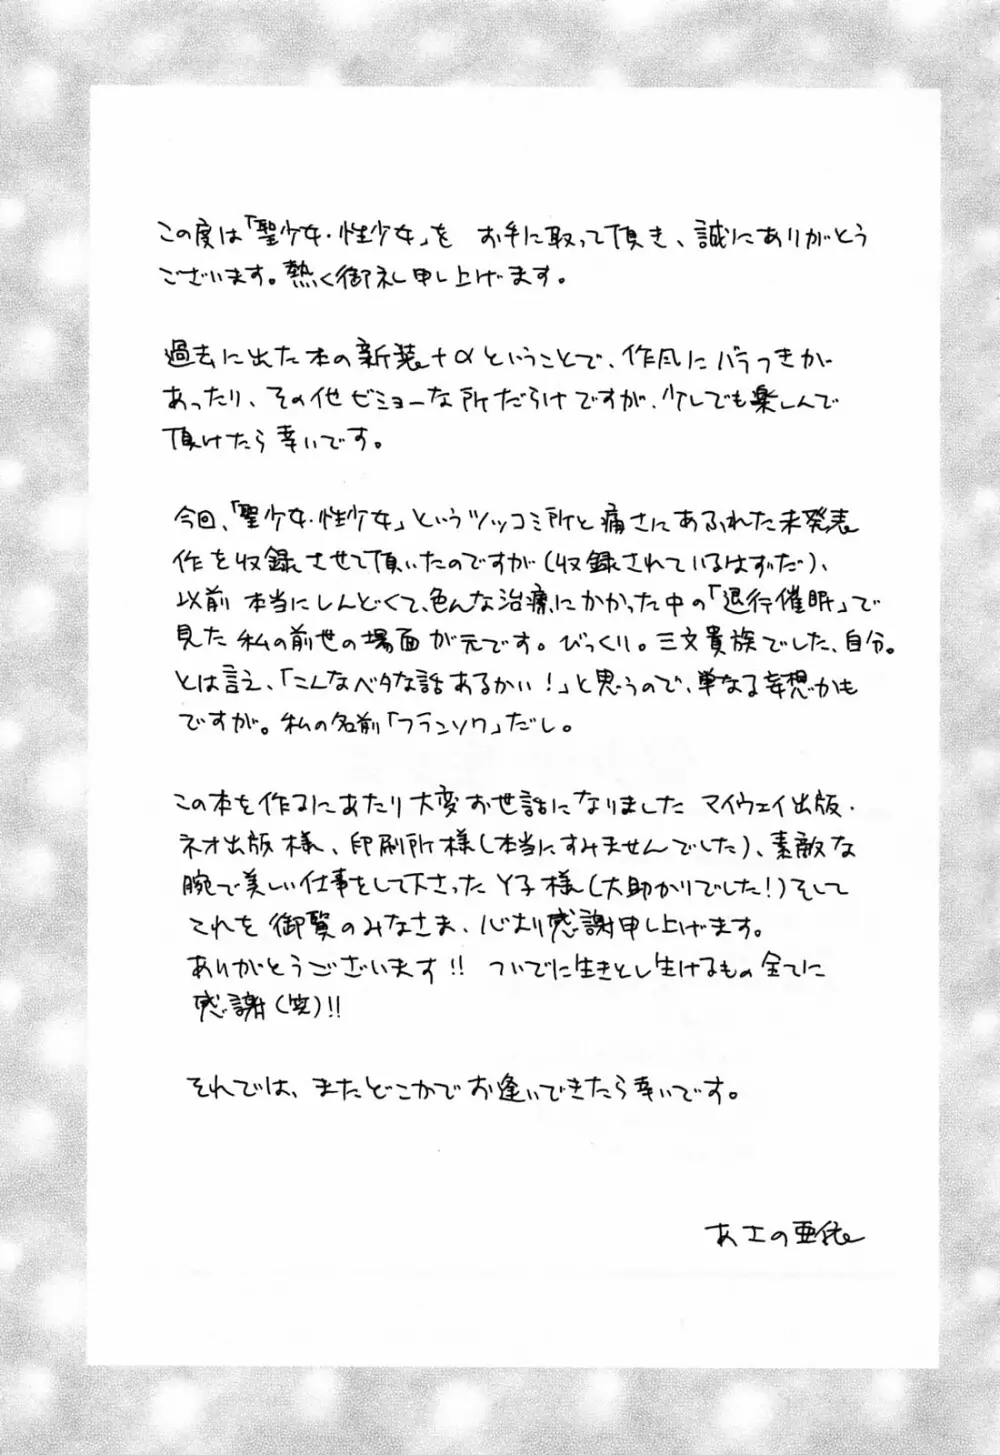 この度は「聖少女・性少女」を お手に取って頂き、誠にありがとう
ございます。熱く御礼申し上げます。
過去に出た本の新装+αということで、作風にバラつきが
あったり、その他ビミョーな所だらけですが、少しでも楽しんで
頂けたら幸いです。
今回、「聖少女・性少女」というツッコミ所と痛さにあふれた未発表
作を収録させて頂いたのですが(収録されているはずだ)、
以前 本当にしんどくて、色んな治療にかかった中の「退行催眠」で
見た 私の前世の場面が元です。びっくり。三文貴族でした、自分。
とは言え、「こんなベタな話あるかい!」と思うので、単なる妄想かも
ですが。私の名前「フランソワ」だし。
この本を作るにあたり大変お世話になりました マイウェイ出版・
ネオ出版様、印刷所様(本当にすみませんでした)、素敵な
腕で美しい仕事をして下さったY子様(大助かりでした!)そして
これを御覧のみなさま、心より感謝申し上げます。
ありがとうございます!! ついでに生きとし生けるもの全てに
感謝(笑)!!
それでは、またどこかでお逢いできたら幸いです。
あさの亜依